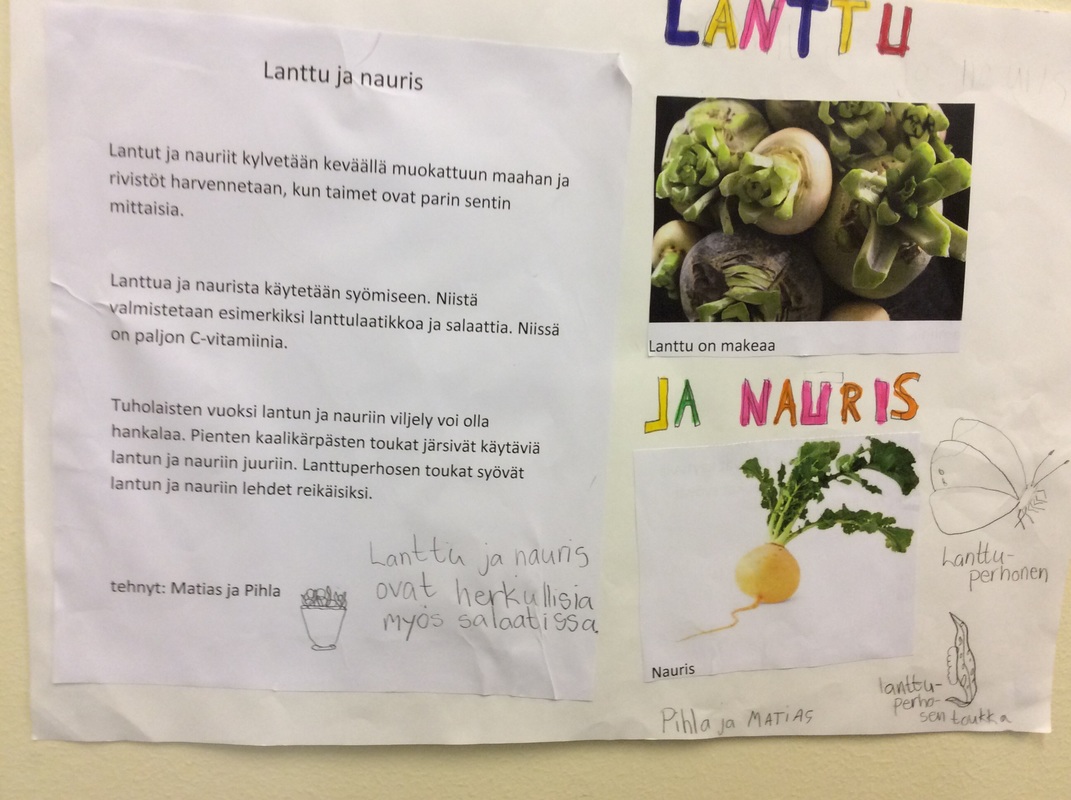 Lanttu ja nauris
Lantut ja nauriit kylvetään keväällä muokattuun maahan ja
rivistöt harvennetaan, kun taimet ovat parin sentin
mittaisia.
Lanttua ja naurista käytetään syömiseen. Niistä
valmistetaan esimerkiksi lanttulaatikkoa ja salaattia. Niissä
on paljon C-vitamiinia.
Tuholaisten vuoksi lantun ja nauriin viljely voi olla
hankalaa. Pienten kaalikärpästen toukat järsivät käytäviä
lantun ja nauriin juuriin. Lanttuperhosen toukat syövät
lantun ja nauriin lehdet reikäisiksi.
tehnyt: Matias ja Pihla
Lanttu ja nauris
ovat herkullisia
myös salaatissa.
LANTTU
Lanttu on makeaa
JA NAURIS
Nauris
Lanttu-
perhonen
lanttu-
perho-
sen toukka
Pihla ja MATIAS